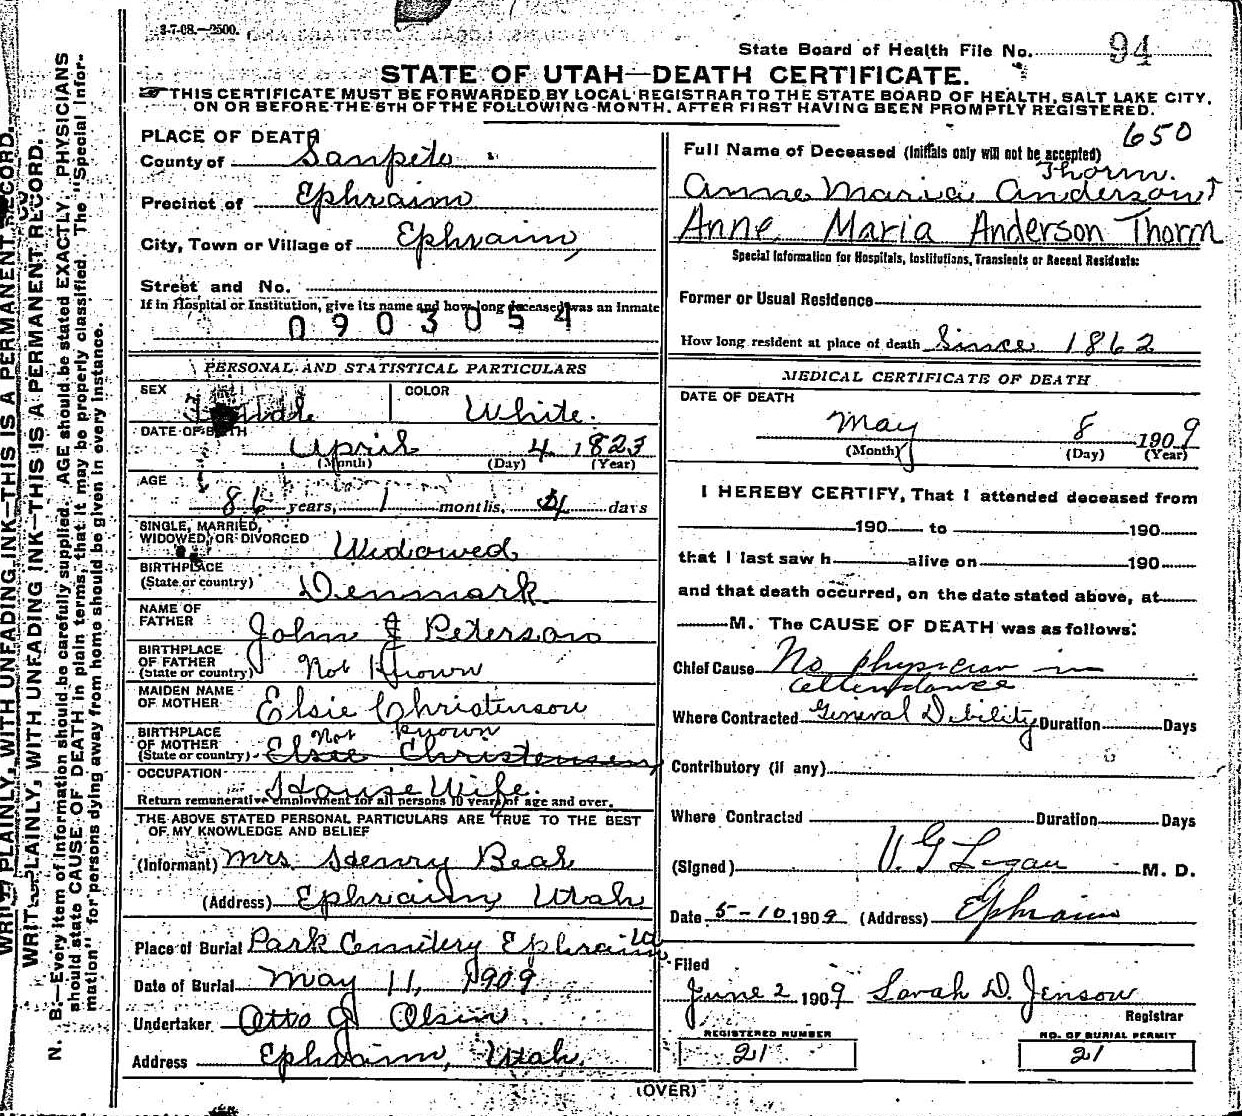 3-7-08.—2500.
State Board of Health File No. 94
STATE OF UTAH—DEATH CERTIFICATE.
THIS CERTIFICATE MUST BE FORWARDED BY LOCAL REGISTRAR TO THE STATE BOARD OF HEALTH, SALT LAKE CITY,
ON OR BEFORE THE 5TH OF THE FOLLOWING MONTH, AFTER FIRST HAVING BEEN PROMPTLY REGISTERED.
PLACE OF DEATH
County of Sanpete
Precinct of Ephraim
City, Town or Village of Ephraim,
Street and No.
If in Hospital or Institution, give its name and how long deceased was an inmate
0903054
PERSONAL AND STATISTICAL PARTICULARS
SEX Female COLOR White.
DATE OF BIRTH April 4 1823
(Month) (Day) (Year)
AGE 86 years, 1 months, 4 days
SINGLE, MARRIED,
WIDOWED, OR DIVORCED Widowed
BIRTHPLACE
(State or country) Denmark
NAME OF
FATHER John J Peterson
BIRTHPLACE
OF FATHER
(State or country) Not Known
MAIDEN NAME
OF MOTHER Elsie Christenson
BIRTHPLACE
OF MOTHER Not Known
(State or country) Elsie Christensen
OCCUPATION House Wife.
Return remunerative employment for all persons 10 years of age and over.
THE ABOVE STATED PERSONAL PARTICULARS ARE TRUE TO THE BEST
OF MY KNOWLEDGE AND BELIEF
(Informant) Mrs Henry Beal
(Address) Ephraim, Utah
Place of Burial Park Cemitery Ephraim
Date of Burial May 11, 1909
Undertaker Otto J Olsen
Address Ephraim, Utah.
650
Full Name of Deceased (Initials only will not be accepted)
Thorm.
Anne Maria Anderson
Anne Maria Anderson Thorm
Special Information for Hospitals, Institutions, Transients or Recent Residents:
Former or Usual Residence
How long resident at place of death Since 1862
MEDICAL CERTIFICATE OF DEATH
DATE OF DEATH
May 8 1909
(Month) (Day) (Year)
I HEREBY CERTIFY, That I attended deceased from
190 to 190
that I last saw h alive on 190
and that death occurred, on the date stated above, at
M. The CAUSE OF DEATH was as follows:
Chief Cause No physician in
attendance
Where Contracted General Debility Duration Days
Contributory (if any)
Where Contracted Duration Days
(Signed) U. G Logan M. D.
Date 5-10 1909 (Address) Ephraim
Filed
June 2 1909 Sarah D. Jenson
Registrar
REGISTERED NUMBER NO. OF BURIAL PERMIT
21 21
(OVER)
WRITE PLAINLY, WITH UNFADING INK—THIS IS A PERMANENT RECORD.
WRITE PLAINLY, WITH UNFADING INK—THIS IS A PERMANENT RECORD.
N. B.—Every item of information should be carefully supplied. AGE should be stated EXACTLY. PHYSICIANS
should state CAUSE OF DEATH in plain terms, that it may be properly classified. The "Special Infor-
mation" for persons dying away from home should be given in every instance.